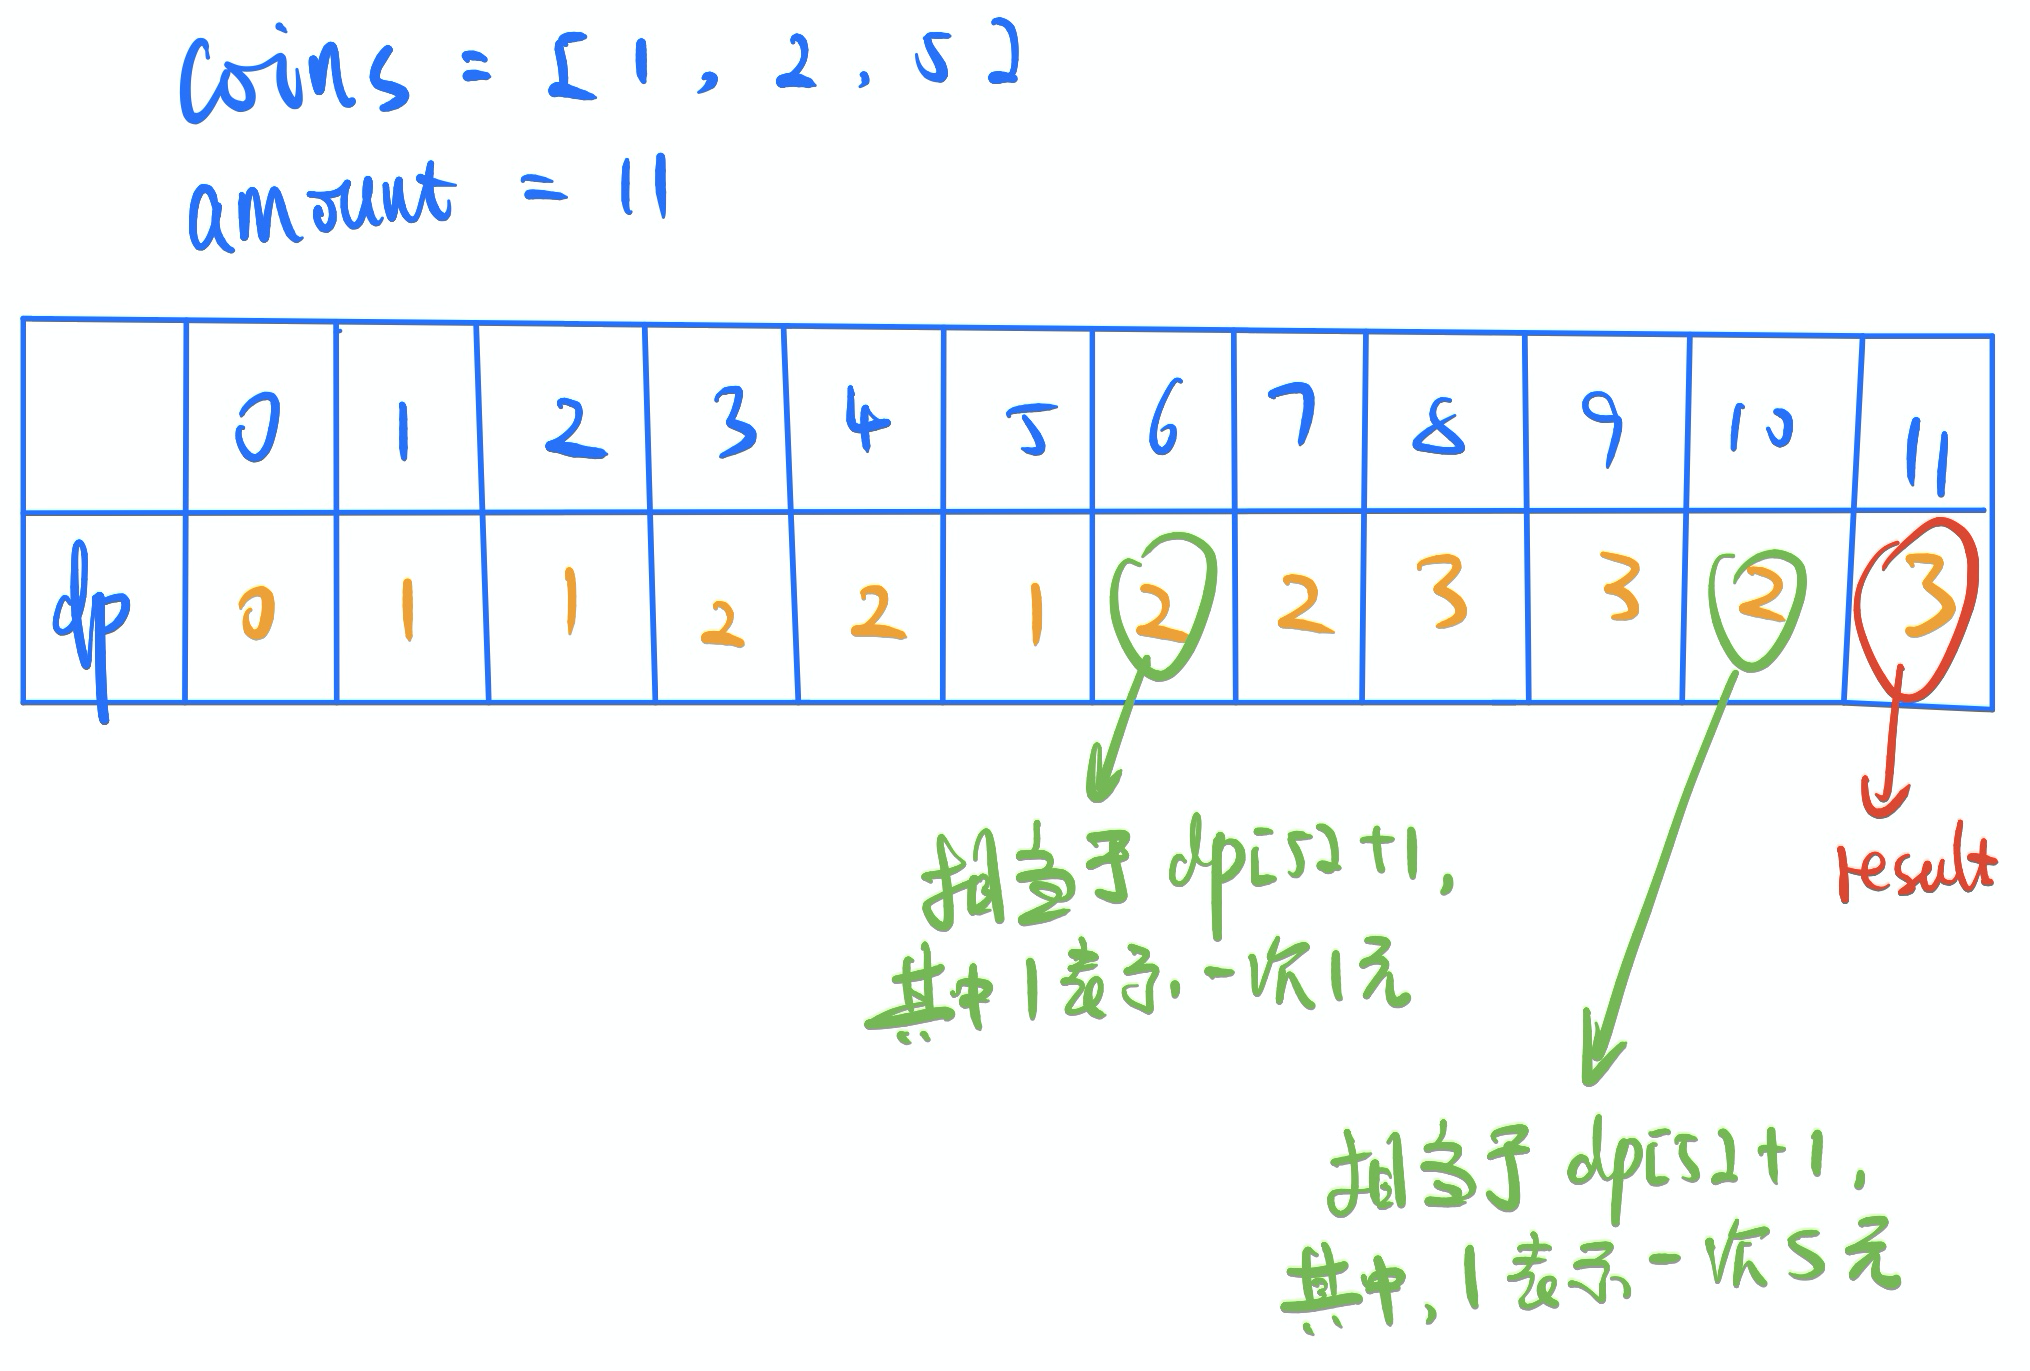 coins = [1, 2, 5]
amount = 11
0 1 2 3 4 5 6 7 8 9 10 11
dp 0 1 1 2 2 1 2 2 3 3 2 3
相当于 dp[5]+1,
其中1表示一次1元
result
相当于 dp[5]+1,
其中,1表示一次5元